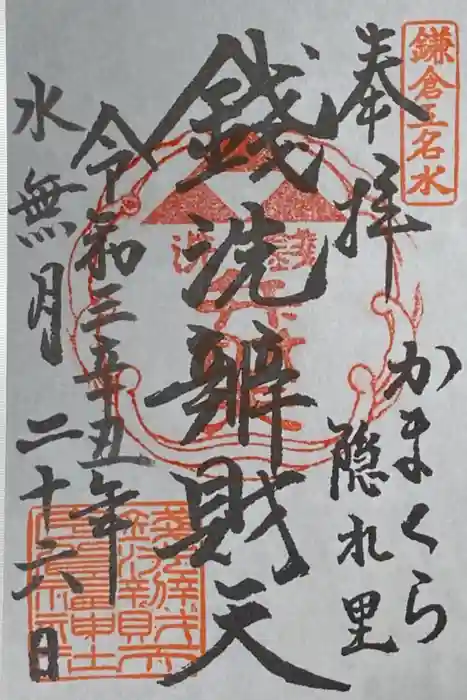 鎌倉五名水
奉拝
かまくら
隠れ里
銭洗
錢洗辨財天
令和三辛丑年
水無月二十六日